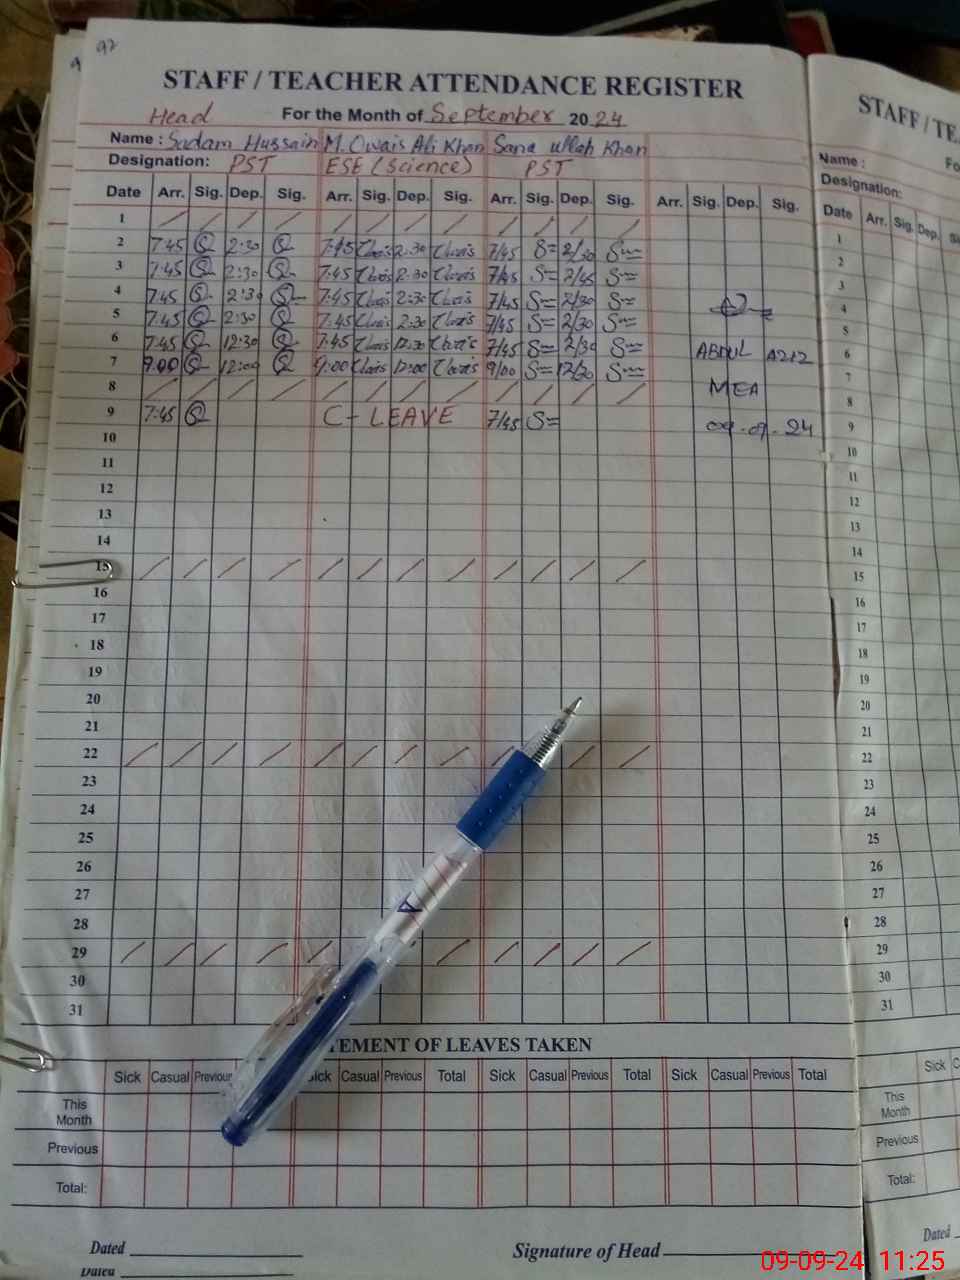 92
STAFF / TEACHER ATTENDANCE REGISTER
Head For the Month of September 2024
Name : Sadam Hussain M. Owais Ali Khan Sana ullah Khan
Designation: PST ESE (Science) PST
Date Arr. Sig. Dep. Sig. Arr. Sig. Dep. Sig. Arr. Sig. Dep. Sig. Arr. Sig. Dep. Sig.
1
2 7:45 2:30 7:45 2:30 7/45 2/30
3 7:45 2:30 7:45 2:30 7/45 2/45
4 7:45 2:30 7:45 2:30 7/45 2/30
5 7:45 2:30 7:45 2:30 7/45 2/30
6 7:45 12:30 7:45 12:30 7/45 2/30 ABDUL
7 9:00 12:00 9:00 12:00 9/00 12/30
8 MEA
9 7:45 C-LEAVE 7/45 09.09.24
10
11
12
13
14
15
16
17
18
19
20
21
22
23
24
25
26
27
28
29
30
31
TEMENT OF LEAVES TAKEN
Sick Casual Previous Sick Casual Previous Total Sick Casual Previous Total Sick Casual Previous Total
This
Month
Previous
Total:
Dated
Signature of Head
Dated
STAFF / TE
Name : Fo
Designation:
Date Arr. Sig. Dep.
1
2
3
4
5
6
7
8
9
10
11
12
13
14
15
16
17
18
19
20
21
22
23
24
25
26
27
28
29
30
31
Sick
This
Month
Previous
Total:
Dated
09-09-24 11:25